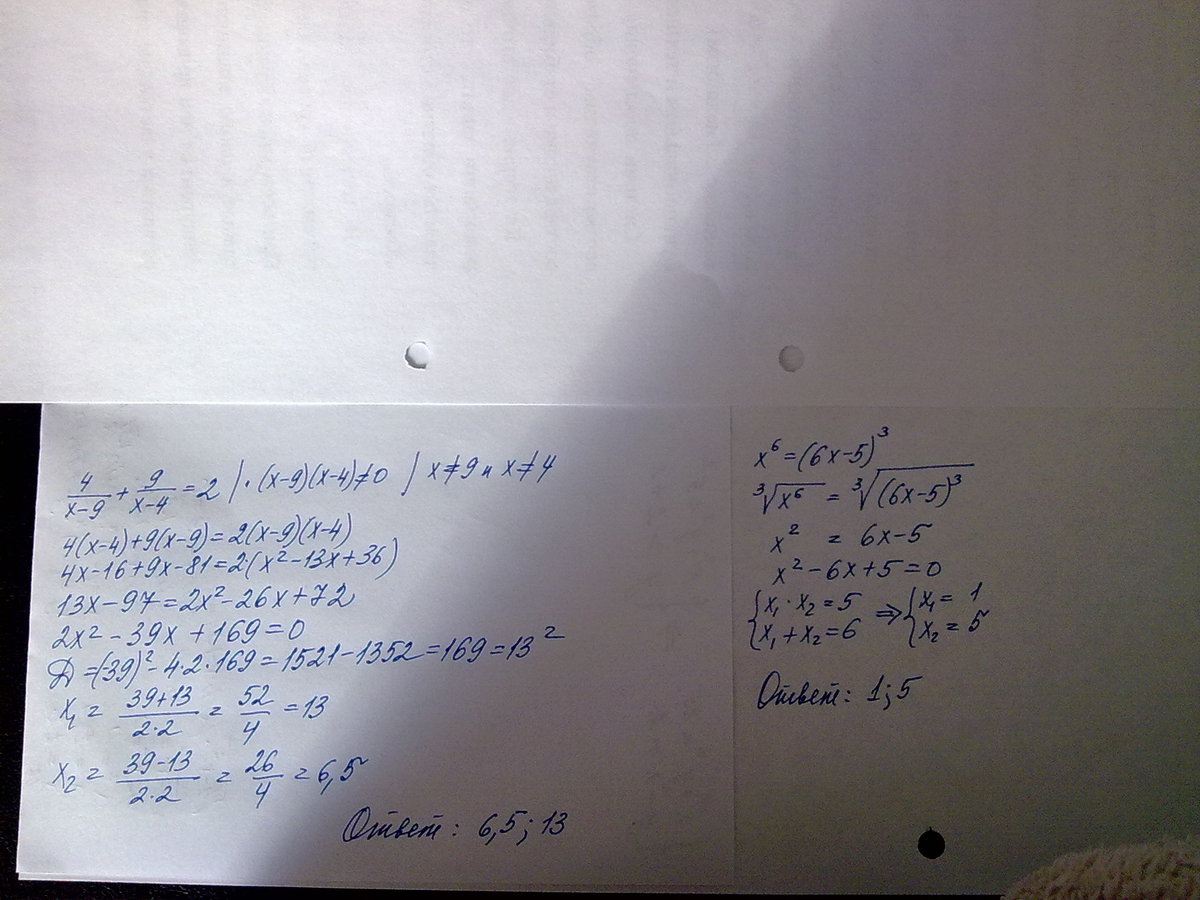 4/(x-9) + 9/(x-4) = 2 | · (x-9)(x-4)≠0 | x≠9 и x≠4
4(x-4)+9(x-9)=2(x-9)(x-4)
4x-16+9x-81=2·(x²-13x+36)
13x-97=2x²-26x+72
2x²-39x+169=0
D=(-39)²-4·2·169=1521-1352=169=13²
x₁ = (39+13)/(2·2) = 52/4 = 13
x₂ = (39-13)/(2·2) = 26/4 = 6,5
Ответ: 6,5; 13
x⁶=(6x-5)³
∛(x⁶) = ∛((6x-5)³)
x² = 6x-5
x²-6x+5=0
{x₁·x₂=5 ⇒ {x₁=1
{x₁+x₂=6 {x₂=5
Ответ: 1; 5